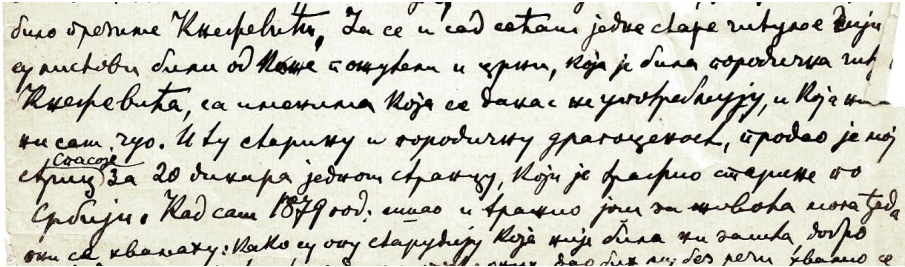 било презиме Кнежевићи, Ја се и сад сећам једне старе читуље чији
су листови били од коже пожутели и црни, која је била породичка чит
Кнежевића, са именима која се данас не употребљују, и која ни
ни сам чуо. И ту старину и породичну драгоценост, продао је мој
Спасоје
стриц за 20 динара једном странцу, који је тражио старине по
Србији. Кад сам 1879 год: ишао и тражио још за живота мога ђеда
они се хваљаху: како су ону старудију која није била ни зашта, добро